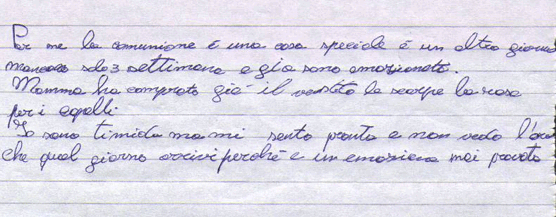 Per me la comunione è una cosa speciale è un altro giorno
mancano solo 3 settimane e già sono emozionata.
Mamma ha comprato già il vestito le scarpe la rosa
per i capelli.
Io sono timida ma mi sento pronta e non vedo l'ora
che quel giorno arrivi perché è un emozione mai provata